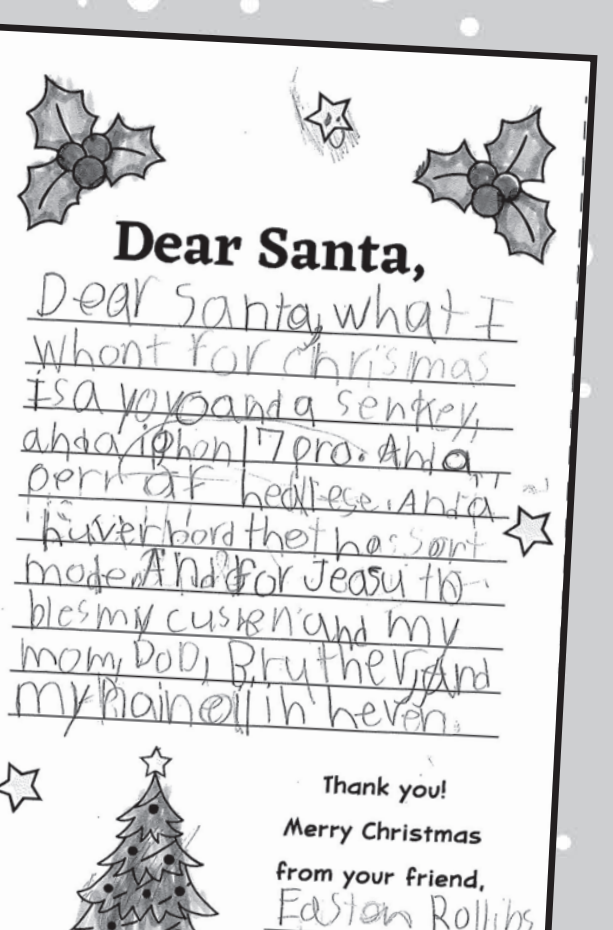 Dear Santa,
Dear Santa, what I
whont for Chrismas
Is a yoyo and a sentkey,
and a iphon 17 pro. And a
perr of heallese. And a
huverbord thet has Sort
mode. And for Jeasu to
bles my cusen and my
mom, DoD, Bruther, and
my in heven.
Thank you!
Merry Christmas
from your friend,
Easton Rollins